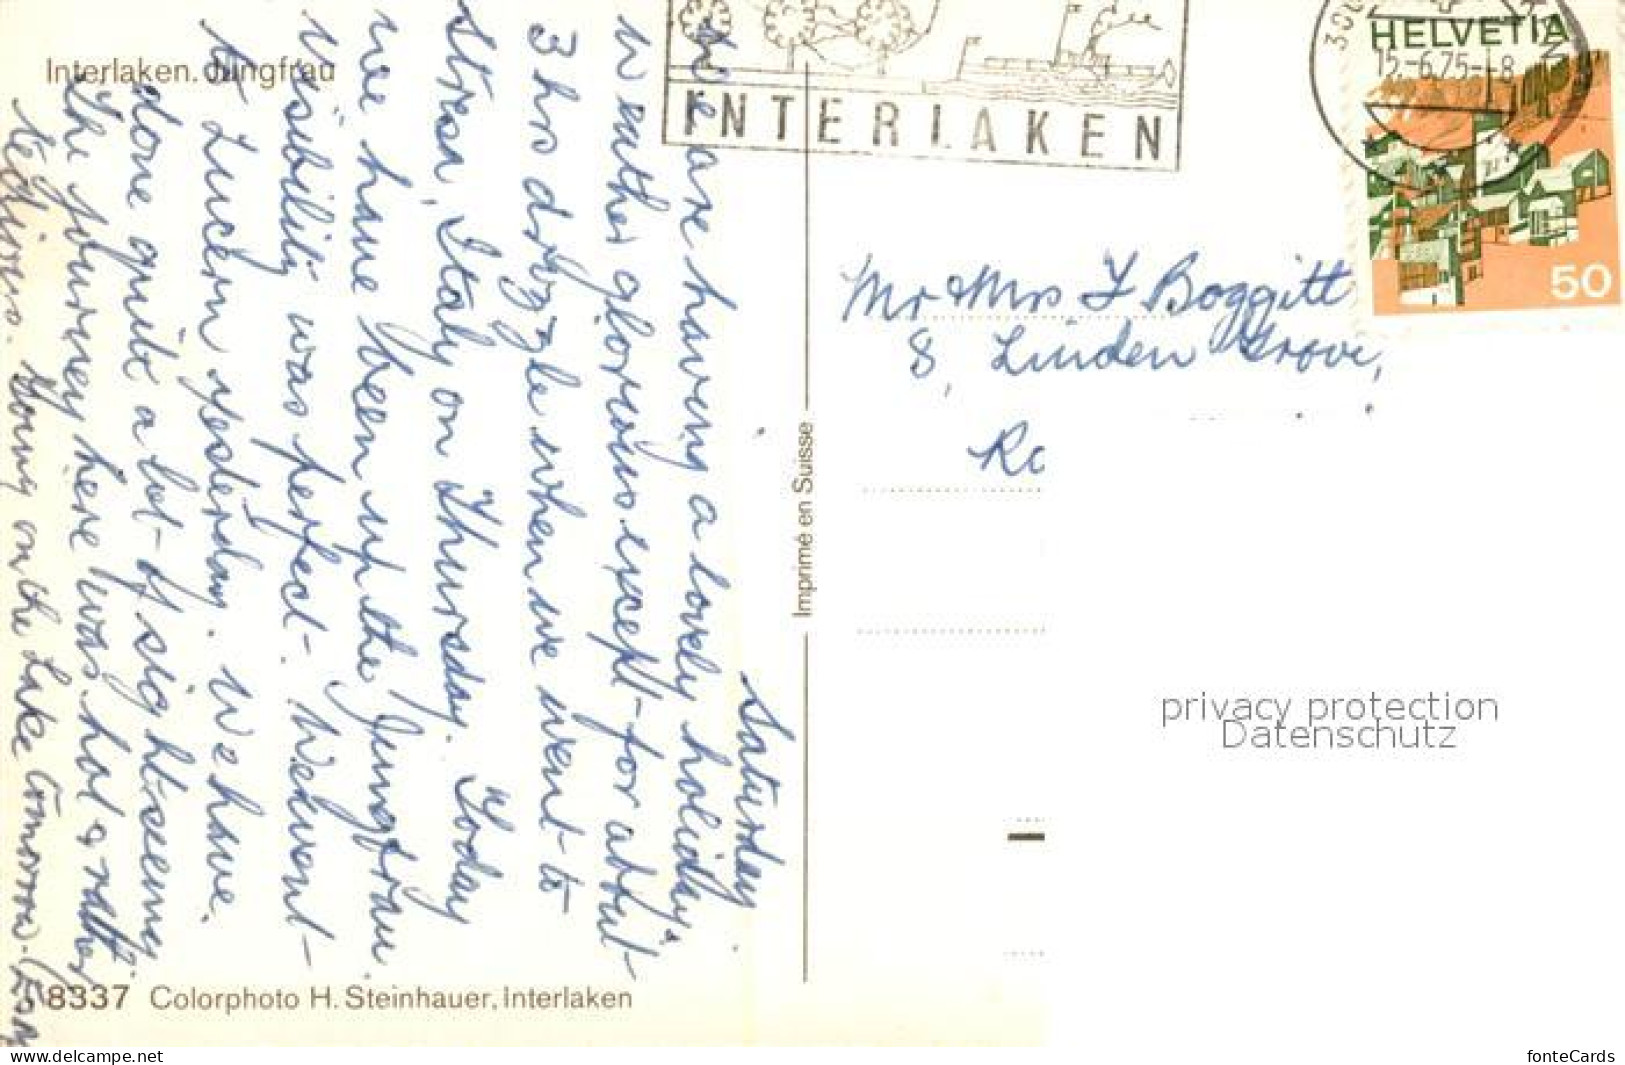 Interlaken. Jungfrau
Saturday.
We are having a lovely holiday,
weather glorious except for about
3 hrs drizzle when we went to
Stresa, Italy on Thursday. Today
we have been up the Jungfrau.
visibility was perfect. We went
to Lucern yesterday. We have
done quite a lot of sight-seeing
The journey here was hot & rather
tedious. Going on the Lake tomorrow.
58337 Colorphoto H. Steinhauer, Interlaken
Imprimé en Suisse
INTERLAKEN
HELVETIA
15.-6.75--8
50
Mr & Mrs F Boggitt
8, Linden Grove,
privacy protection
Datenschutz
www.delcampe.net
fonteCards